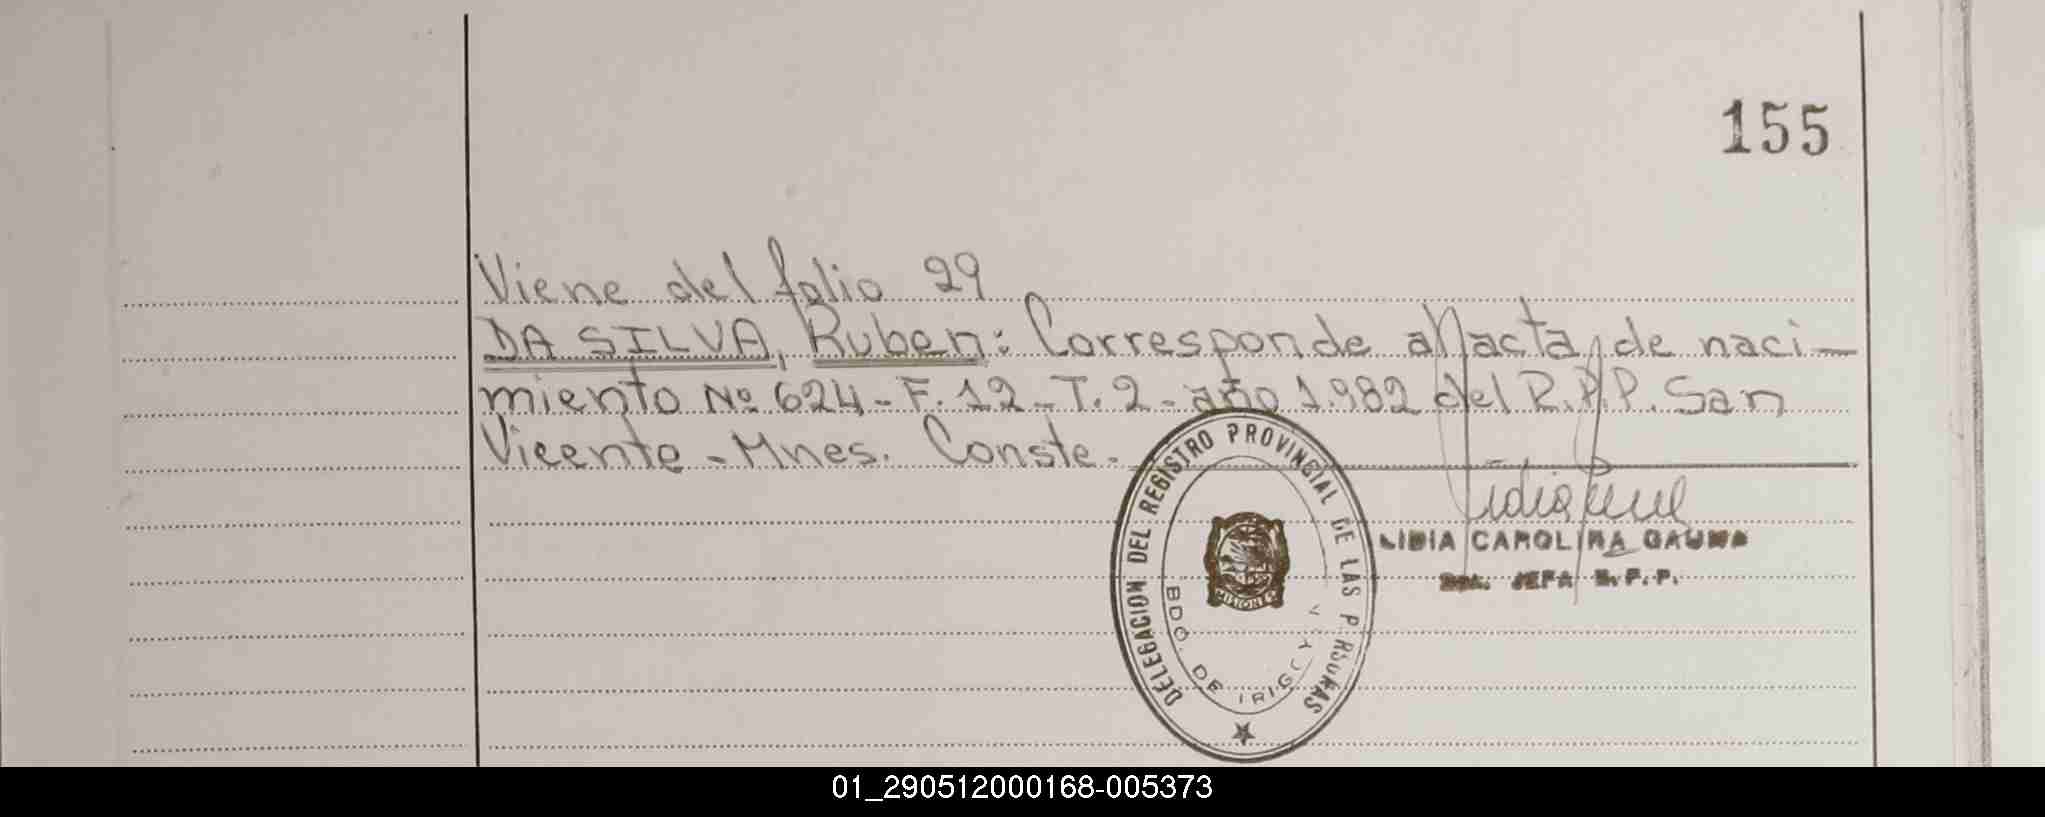 155
Viene del folio 29
DA SILVA, Ruben: Corresponde al acta de naci-
miento Nº 624 - F. 12 - T. 2 - año 1.982 del R.P.P. San
Vicente - Mnes. Conste.
DELEGACION DEL REGISTRO PROVINCIAL DE LAS P RSONAS
BDO. DE IRIGOYEN
MISIONES
LIDIA CAROLINA GAUNA
JEFA R.P.P.
01_290512000168-005373